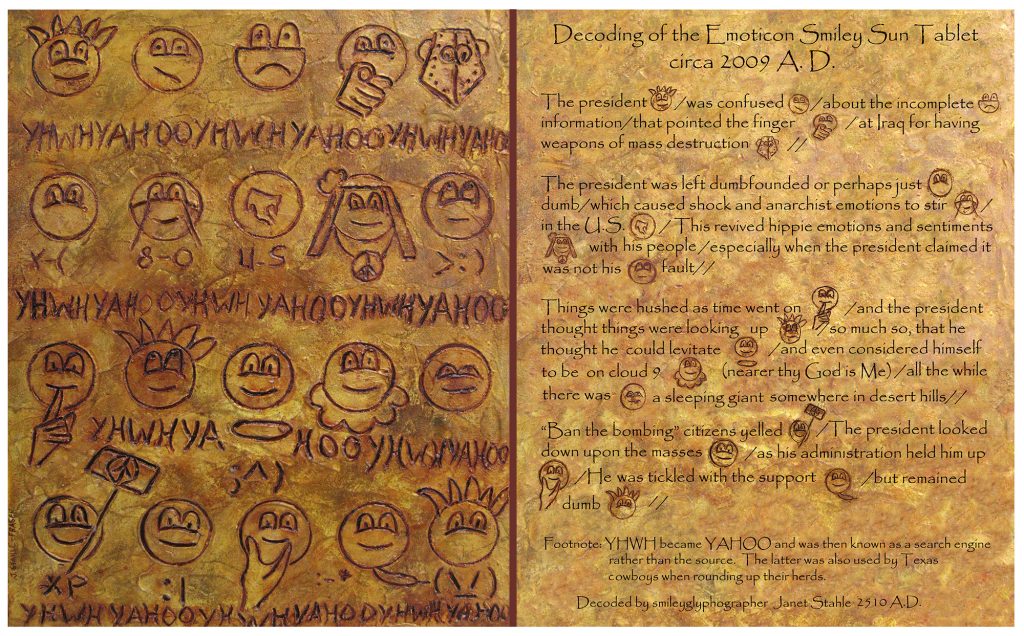 YHWHYAHOOYHWHYAHOOYHWHYAHOO
X-( 8-O U-S >:)
YHWHYAHOOYHWH YAHOOYHWHYAHOO
YHWHYA HOOYHWHYAHOO
;^)
XP :|
YHWH YAHOOYHWHYAHOOYHWHYAHOO
Decoding of the Emoticon Smiley Sun Tablet
circa 2009 A. D.
The president /was confused /about the incomplete
information/that pointed the finger /at Iraq for having
weapons of mass destruction //
The president was left dumbfounded or perhaps just
dumb/which caused shock and anarchist emotions to stir /
in the U.S. / This revived hippie emotions and sentiments
with his people/especially when the president claimed it
was not his fault//
Things were hushed as time went on /and the president
thought things were looking up /so much so, that he
thought he could levitate /and even considered himself
to be on cloud 9 (nearer thy God is Me)/all the while
there was a sleeping giant somewhere in desert hills//
"Ban the bombing" citizens yelled /The president looked
down upon the masses /as his administration held him up
/He was tickled with the support /but remained
dumb //
Footnote: YHWH became YAHOO and was then known as a search engine
rather than the source. The latter was also used by Texas
cowboys when rounding up their herds.
Decoded by smileyglyphographer Janet Stahle- 2510 A.D.